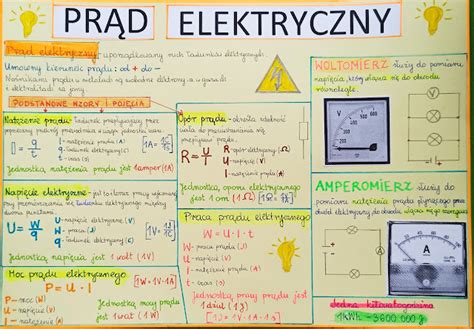 PRĄD ELEKTRYCZNY
Prąd elektryczny - uporządkowany ruch ładunków elektrycznych.
Umowny kierunek prądu: od + do -
Nośnikami prądu w metalach są swobodne elektrony a w gazach
i elektrolitach są jony
PODSTAWOWE WZORY I POJĘCIA
Natężenie prądu - ładunek przepływający przez
poprzeczny przekrój przewodnika w czasie
I = q/t
I - natężenie prądu (A)
q - ładunek elektryczny (C)
t - czas (s)
[1A = 1C/1s]
Jednostką natężenia prądu jest 1 amper (1A)
Napięcie elektryczne - jest to praca
ładunku między
dwoma punktami.
U = W/q
U - napięcie (V)
W - praca (J)
q - ładunek (C)
[1V = 1J/1C]
Jednostką napięcia jest 1 wolt (1V)
Moc prądu elektrycznego
P = U · I
[1W = 1V · 1A]
P - moc (W)
U - napięcie (V)
I - natężenie (A)
Jednostką mocy prądu
jest 1 wat (1W)
Opór prądu - określa zdolność
ciała do przeciwstawiania się
przepływowi prądu
R = U/I
R - opór elektryczny (Ω)
U - napięcie (V)
I - natężenie (A)
Jednostką oporu elektrycznego
jest 1 om (1Ω) [1Ω = 1V/1A]
Praca prądu elektrycznego
W = U · I · t
W - praca prądu (J)
U - napięcie (V)
I - natężenie (A)
t - czas (s)
Jednostką pracy prądu jest
1 dżul (1J)
[1J = 1V · 1A · 1s]
WOLTOMIERZ służy do pomiaru
napięcia, który włącza się do obwodu
równolegle.
V
200
400
600
V
AMPEROMIERZ służy do
pomiaru natężenia prądu płynącego przez
obwód elektryczny do obwodu włącza się go szeregowo
A
A
Jedna kilowatogodzina
1kWh - 3600 000 J